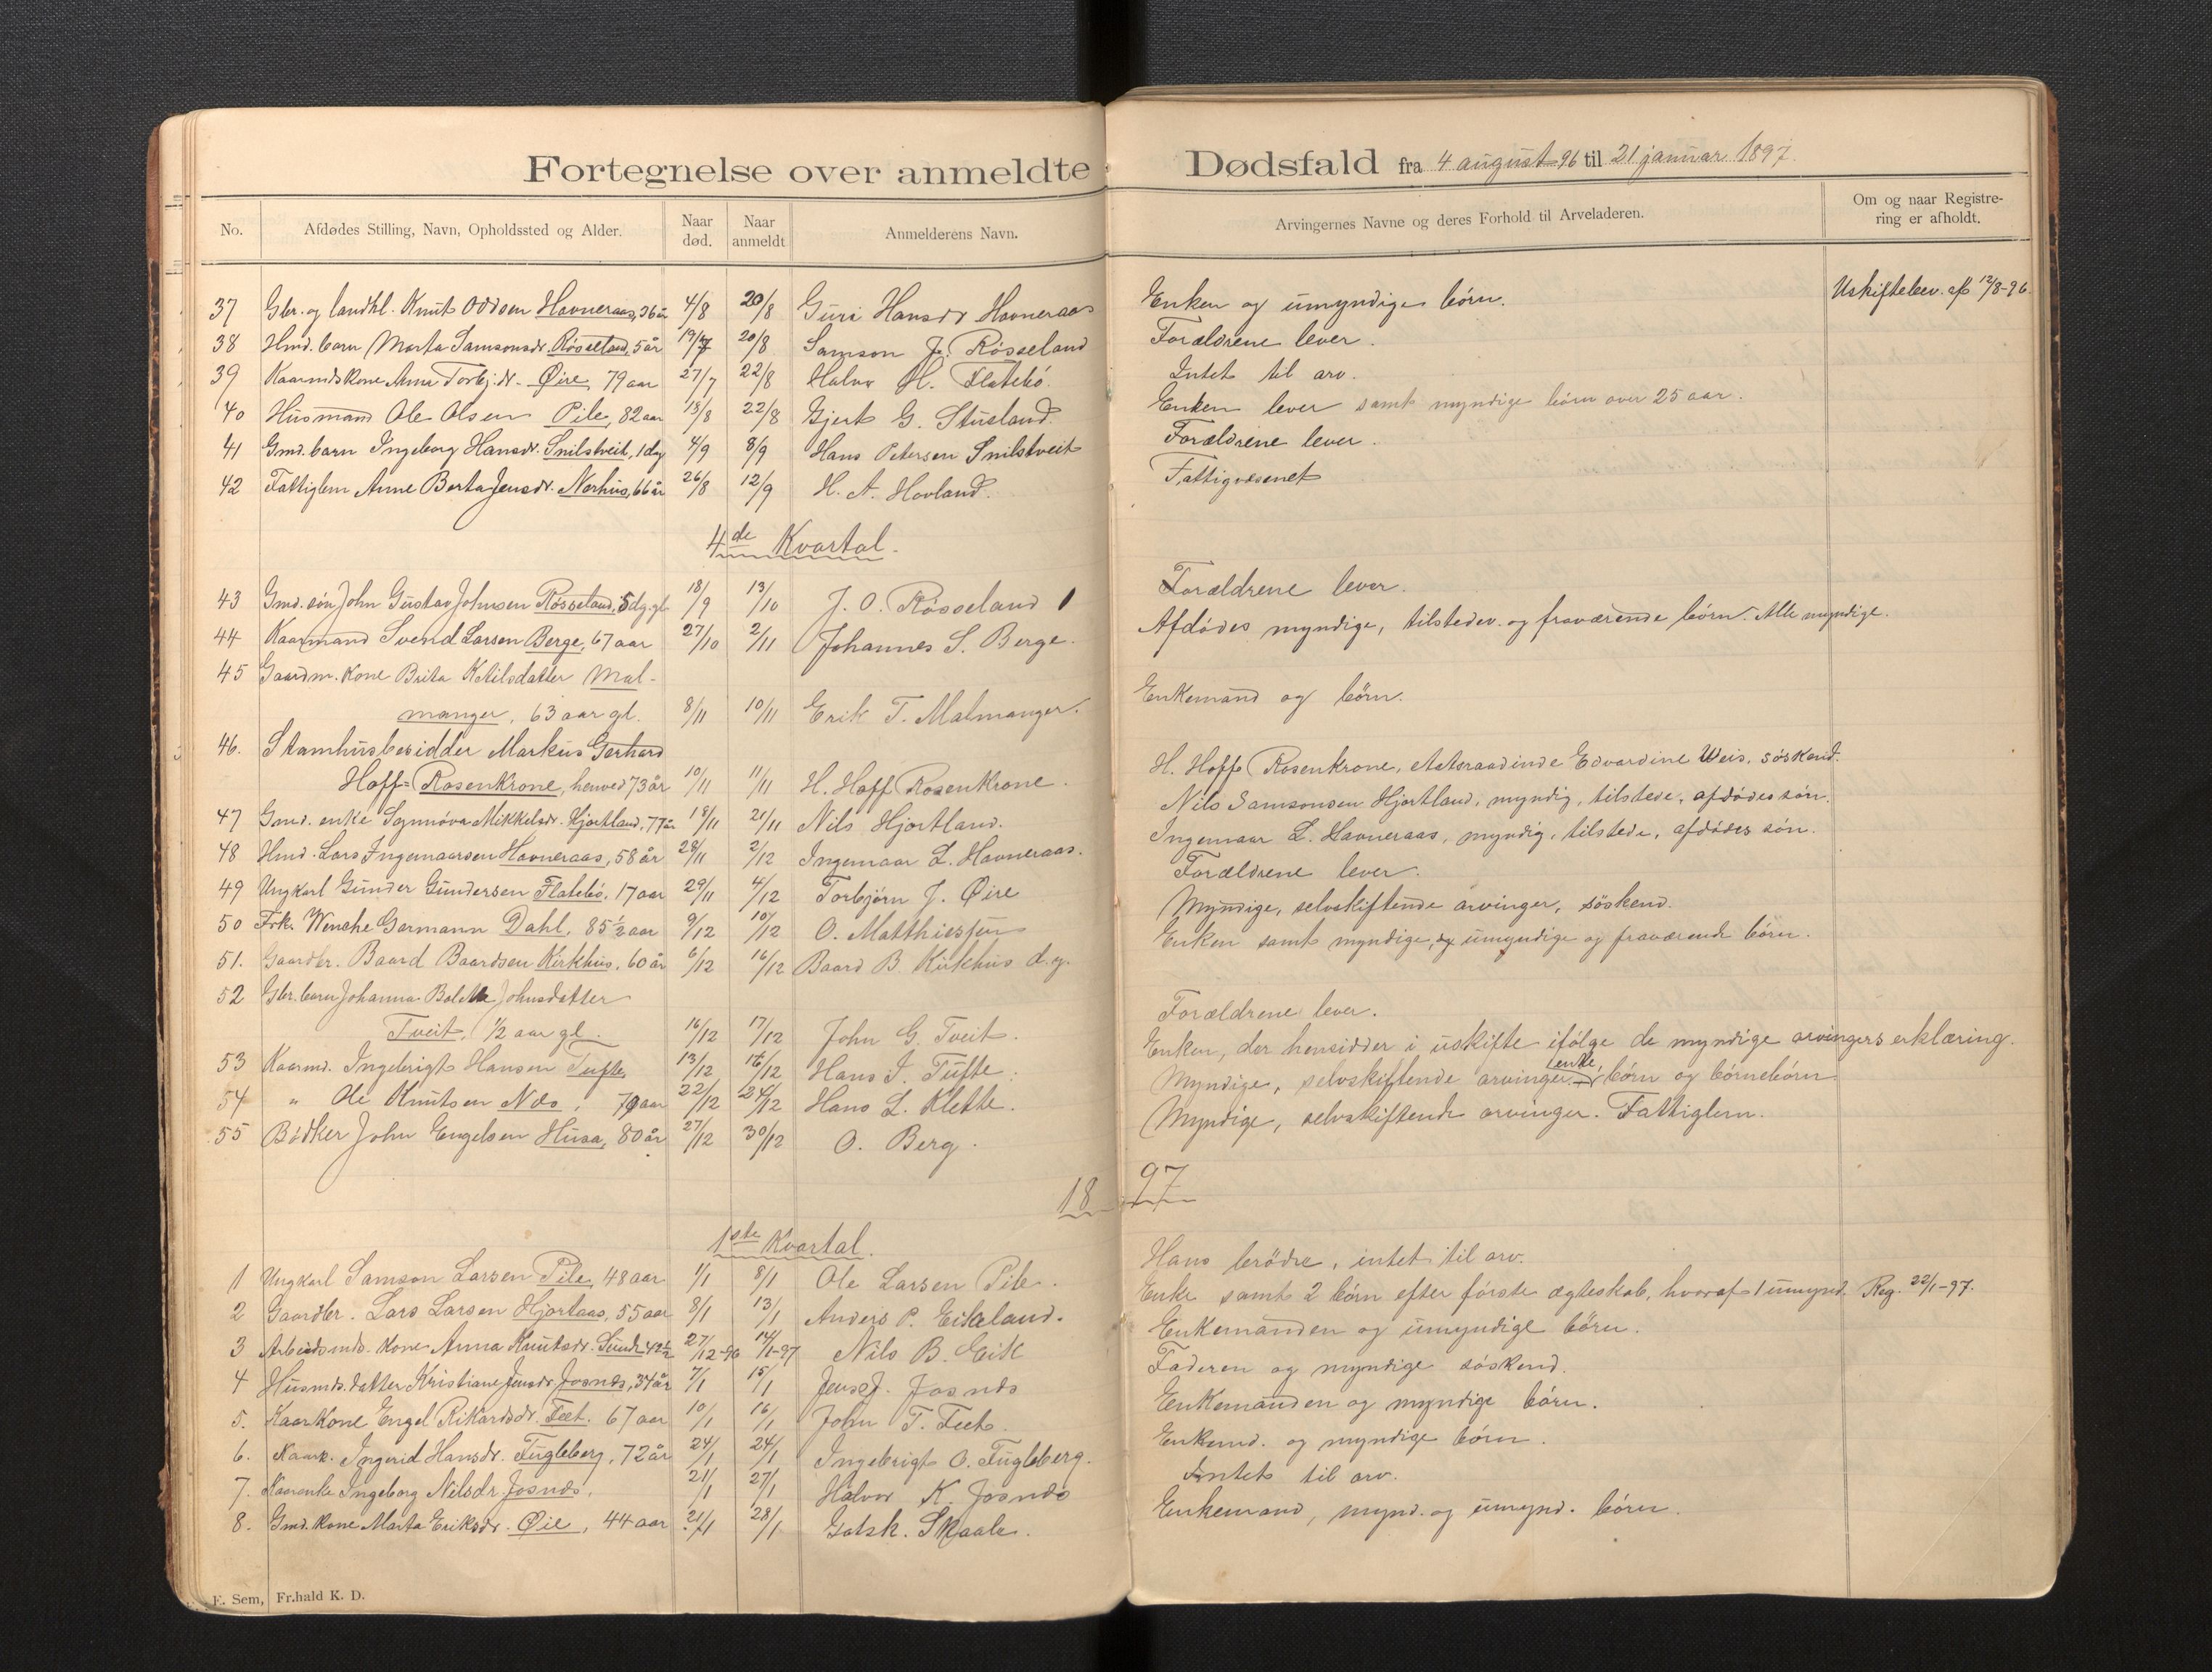 Fortegnelse over anmeldte Dødsfald fra 4 august 96 til 21 januar 1897.
No. Afdødes Stilling, Navn, Opholdssted og Alder. Naar død. Naar anmeldt Anmelderens Navn. Arvingernes Navne og deres Forhold til Arveladeren. Om og naar Registrering er afholdt.
37 Gbr. og landhl. Knut Oddsen Havneraas, 36 år 4/8 20/8 Guri Hansdr Havneraas Enken og umyndige børn. Uskiftebev. af 12/8-96.
38 Hmd. barn Marta Samsonsdr. Røsseland, 5 år 19/7 20/8 Samson J. Røsseland Forældrene lever.
39 Kaarmdskone Anna Torbj.dr. Øire, 79 aar 27/7 22/8 Halvor H. Flatebø. Intet til arv.
40 Husmand Ole Olsen Pile, 82 aar 18/8 22/8 Gjert G. Stusland. Enken lever samt myndige børn over 25 aar.
41 Gmd. barn Ingeborg Hansdr. Snilstveit, 1 dag 4/9 8/9 Hans Petersen Snilstveit Forældrene lever.
42 Fattiglem Anne Berta Jensdr. Nerhus, 66 år 26/8 12/9 H. A. Hovland. Fattigvæsenet
4de Kvartal.
43 Gmd. søn John Gustav Johnsen Røsseland, 5 dg. gl. 18/9 13/10 J. O. Røsseland Forældrene lever.
44 Kaarmand Svend Larsen Berge, 67 aar 27/10 2/11 Johannes S. Berge. Afdødes myndige, tilstedev. og fraværende børn. Alle myndige.
45 Gaardm. kone Brita Ketilsdatter Mal-
manger, 63 aar gl. 8/11 10/11 Erik T. Malmanger. Enkemand og børn.
46. Stamhusbesidder Markus Gerhard
Hoff-Rosenkrone, henved 73 år 10/11 11/11 H. Hoff Rosenkrone. H. Hoff Rosenkrone, etatsraadinde Edvardine Weis, søskend.
47 Gmd. enke Synnøva Mikkelsdr. Hjortland, 77 år 18/11 21/11 Nils Hjortland. Nils Samsonsen Hjortland, myndig, tilstede, afdødes søn.
48 Hmd. Lars Ingemaarsen Havneraas, 58 år 28/11 2/12 Ingemaar L. Havneraas. Ingemaar L. Havneraas, myndig, tilstede, afdødes søn.
49 Ungkarl Gunder Gundersen Flatebø, 17 aar 29/11 4/12 Torbjørn J. Øire Forældrene lever.
50 Frk. Wenche Germann Dahl, 85 1/2 aar 9/12 10/12 O. Matthiessen Myndige, selvskiftende arvinger, søskend.
51. Gaardbr. Baard Baardsen Kirkhus, 60 år 6/12 16/12 Baard B. Kirkhus d.y. Enken samt myndige, og umyndige og fraværende børn.
52 Gbr. barn Johanna Bolette Johnsdatter
Tveit, 1/2 aar gl. 16/12 17/12 John G. Tveit. Forældrene lever.
53 Kaarmd. Ingebrigt Hansen Tufte 13/12 16/12 Hans I. Tufte. Enken, der hensidder i uskifte ifølge de myndige arvingers erklæring.
54 " Ole Knutsen Næs, 79 aar 22/12 24/12 Hans L. Klette. Myndige, selvskiftende arvinger. enke, børn og børnebørn.
55 Bødker John Engelsen Husa, 80 år 27/12 30/12 O. Berg. Myndige, selvskiftende arvinger. Fattiglem.
1897
1ste Kvartal.
1 Ungkarl Samson Larsen Pile, 48 aar 1/1 8/1 Ole Larsen Pile. Hans brødre, intet til arv.
2 Gaardbr. Lars Larsen Hjortaas, 55 aar 8/1 13/1 Anders P. Eikeland. Enke samt 2 børn efter første ægteskab, hvoraf 1 umynd. Reg. 22/1-97.
3 Arbeidsmds. kone Anna Knutsdr. Sunde 42 1/2 27/12-96 14/1-97 Nils B. Eik Enkemanden og umyndige børn.
4 Husmds. datter Kristiane Jensdr. Josnæs, 34 år 7/1 15/1 Jens J. Josnæs Faderen og myndige søskend.
5. Kaarkone Engel Rikardsdr. Feet. 67 aar 10/1 16/1 John T. Feet. Enkemanden og myndige børn.
6. Kaark. Ingerid Hansdr. Fugleberg, 72 år 24/1 24/1 Ingebrigt O. Fugleberg. Enkemd. og myndige børn.
7. Kaarenke Ingeborg Nilsdr. Josnæs. 21/1 27/1 Halvor K. Josnæs Intet til arv.
8. Gmd. kone Marta Eriksdr. Øie, 44 aar 21/1 28/1 Gotsk. Skaale. Enkemand, mynd. og umynd. børn.
E. Sem, Fr.hald K. D.